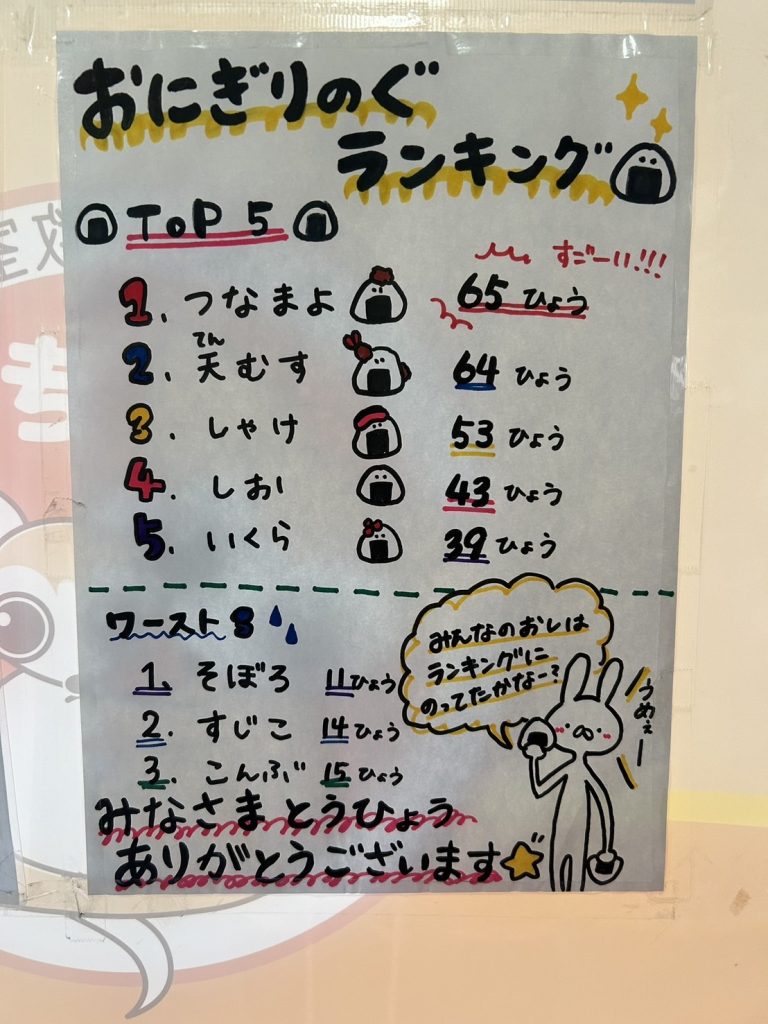 おにぎりのぐ
ランキング
TOP 5
すご〜い!!!
1. つなまよ 65 ひょう
てん
2. 天むす 64 ひょう
3. しゃけ 53 ひょう
4. しお 43 ひょう
5. いくら 39 ひょう
ワースト 3
1. そぼろ 11 ひょう
2. すじこ 14 ひょう
3. こんぶ 15 ひょう
みんなのおしは
ランキングに
のってたかなー?
うめぇー
みなさま とうひょう
ありがとうございます